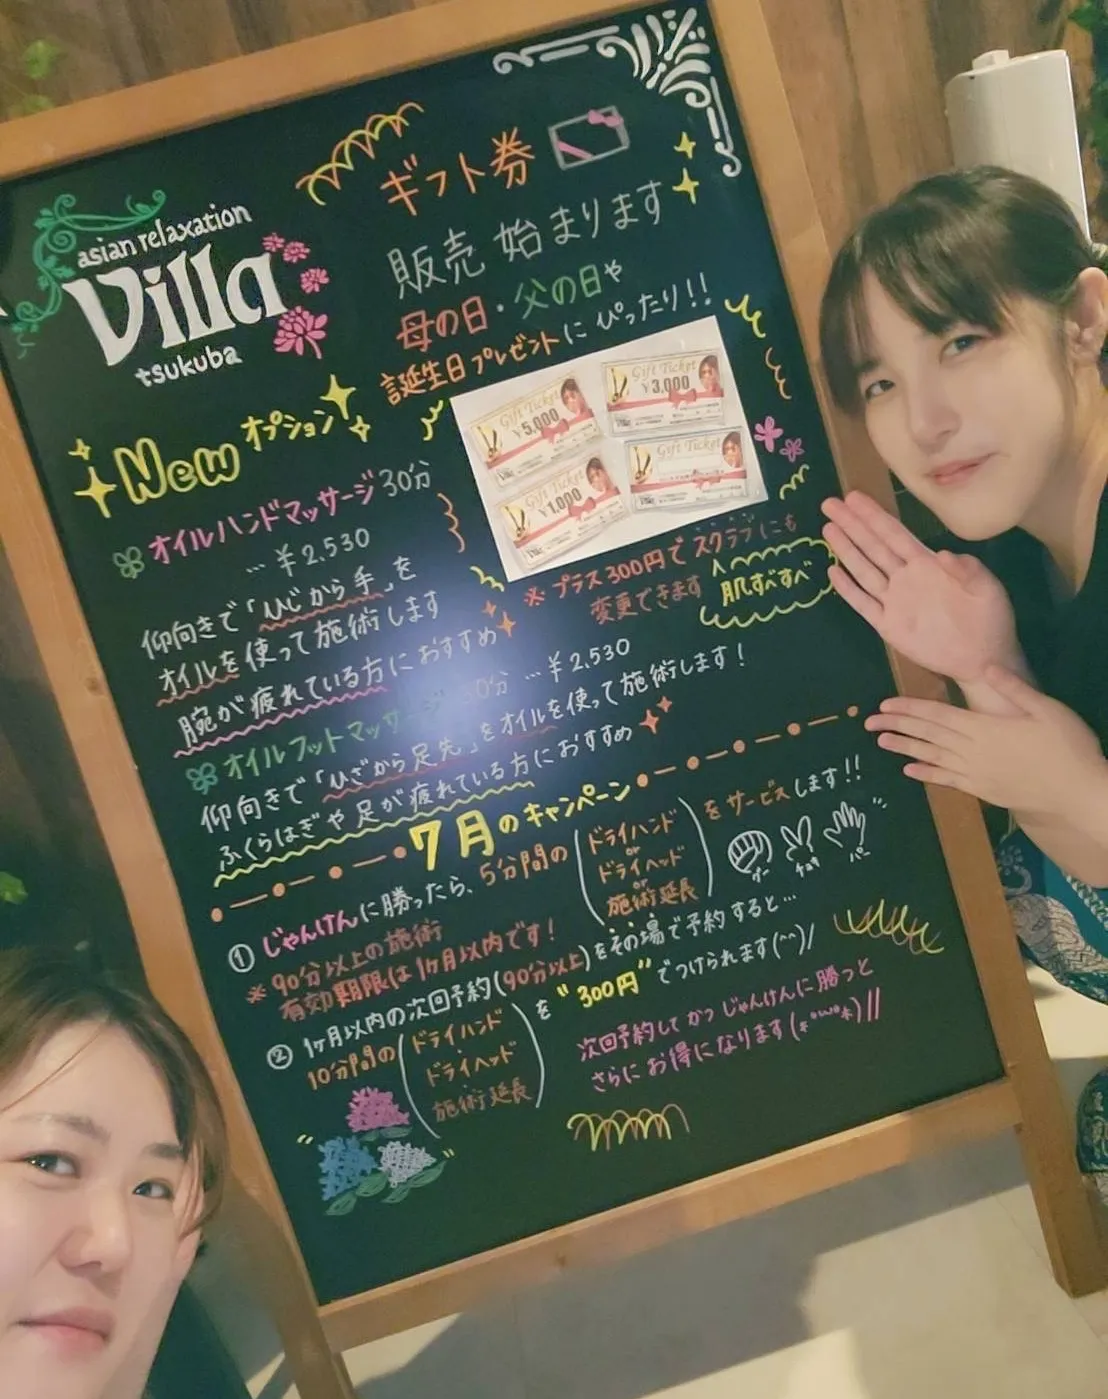 asian relaxation
Villa
tsukuba
ギフト券
販売 始まります
母の日・父の日や
誕生日プレゼントにぴったり!!
Gift Ticket
¥5,000
Gift Ticket
¥3,000
Gift Ticket
¥1,000
Gift Ticket
New オプション
オイルハンドマッサージ 30分
… ¥2,530
仰向きで「ひじから手」を
オイルを使って施術します
腕が疲れている方におすすめ
※ プラス300円でスクラブにも
変更できます
肌すべすべ
オイルフットマッサージ 30分 … ¥2,530
仰向きで「ひざから足先」をオイルを使って施術します!
ふくらはぎや足が疲れている方におすすめ
7月のキャンペーン
① じゃんけんに勝ったら、5分間の
ドライハンド
or
ドライヘッド
or
施術延長
をサービスします!!
グー チョキ パー
※ 90分以上の施術
有効期限は1ヶ月以内です!
② 1ヶ月以内の次回予約(90分以上)をその場で予約すると…
10分間の
ドライハンド
ドライヘッド
施術延長
を "300円" でつけられます(^^)/
次回予約してかつじゃんけんに勝つと
さらにお得になります(*°ω°*)//